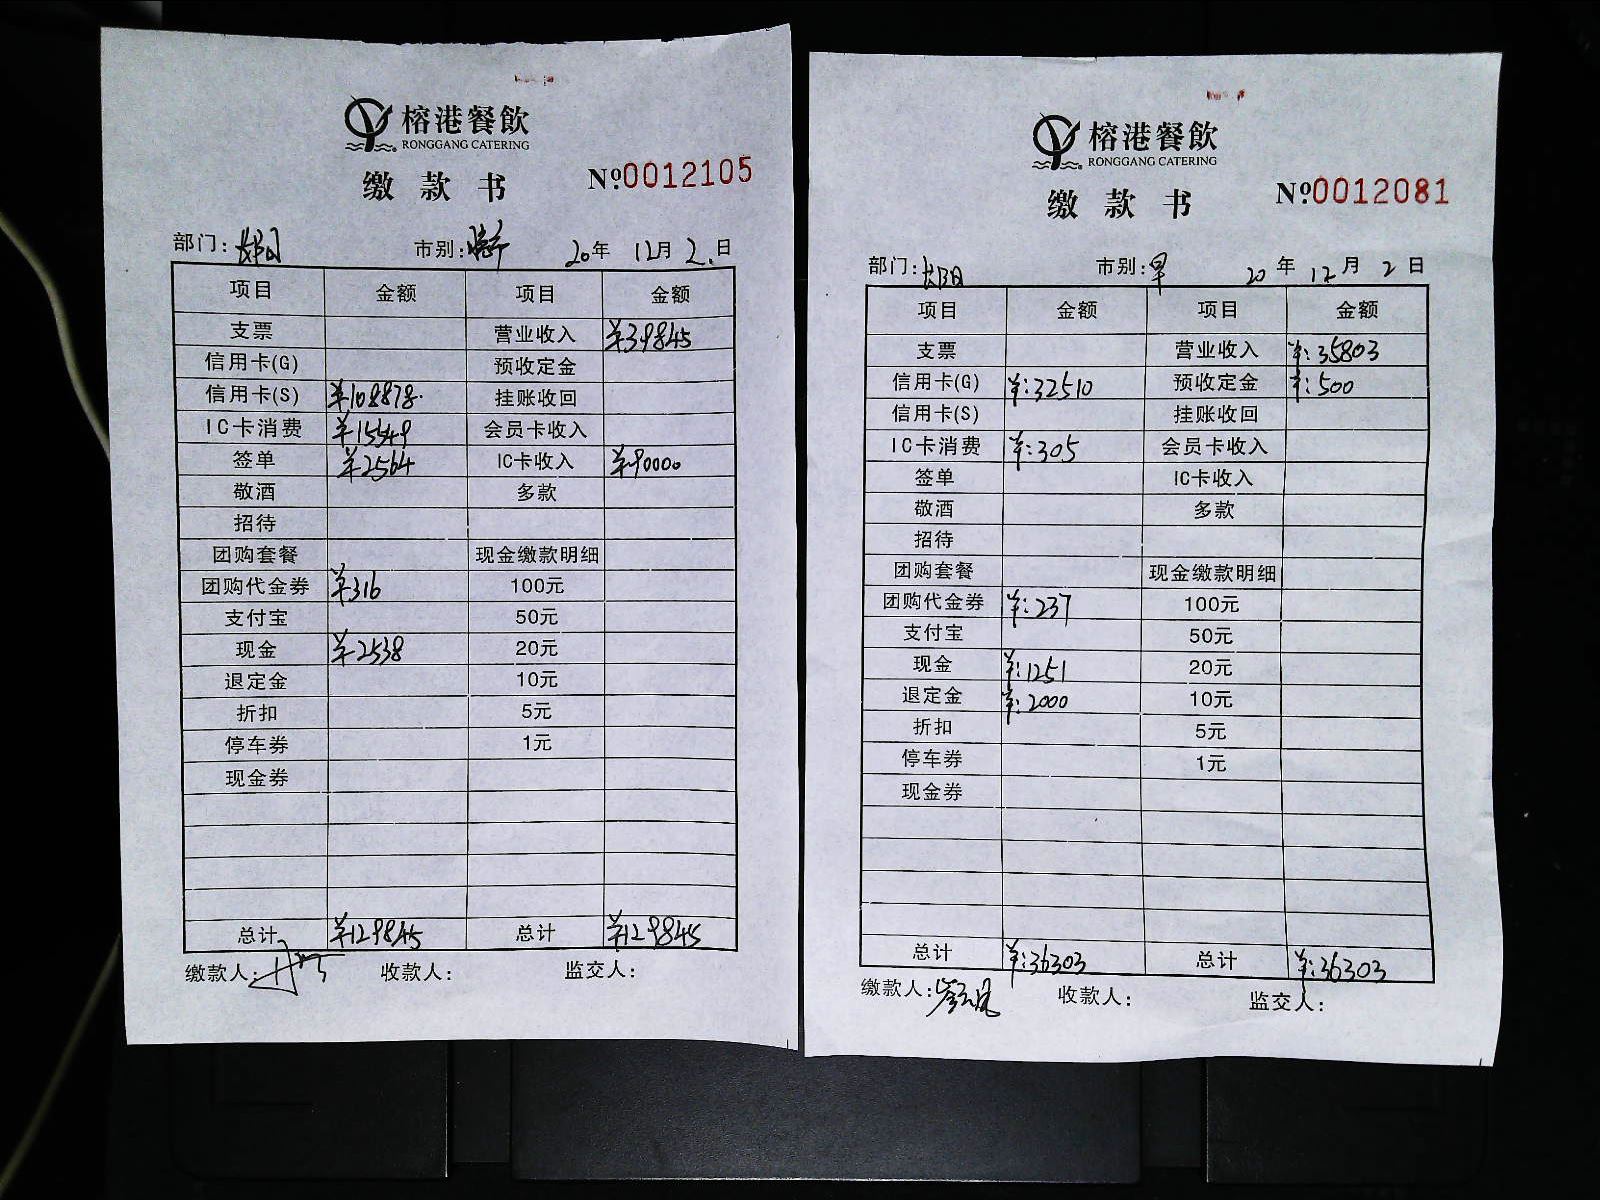 榕港餐飲
RONGGANG CATERING
缴款书 №0012105
部门: 市别: 20年 12月 2.日
项目 金额 项目 金额
支票 营业收入 ¥39845
信用卡(G) 预收定金
信用卡(S) ¥108878. 挂账收回
IC卡消费 ¥15549 会员卡收入
签单 ¥2564 IC卡收入 ¥90000
敬酒 多款
招待
团购套餐 现金缴款明细
团购代金券 ¥316 100元
支付宝 50元
现金 ¥2538 20元
退定金 10元
折扣 5元
停车券 1元
现金券
总计 ¥129845 总计 ¥129845
缴款人: 收款人: 监交人:
榕港餐飲
RONGGANG CATERING
缴款书 №0012081
部门: 市别:早 20年 12月 2日
项目 金额 项目 金额
支票 营业收入 ¥:35803
信用卡(G) ¥:32510 预收定金 ¥:500
信用卡(S) 挂账收回
IC卡消费 ¥:305 会员卡收入
签单 IC卡收入
敬酒 多款
招待
团购套餐 现金缴款明细
团购代金券 ¥:237 100元
支付宝 50元
现金 ¥:1251 20元
退定金 ¥:2000 10元
折扣 5元
停车券 1元
现金券
总计 ¥:36303 总计 ¥:36303
缴款人: 收款人: 监交人: